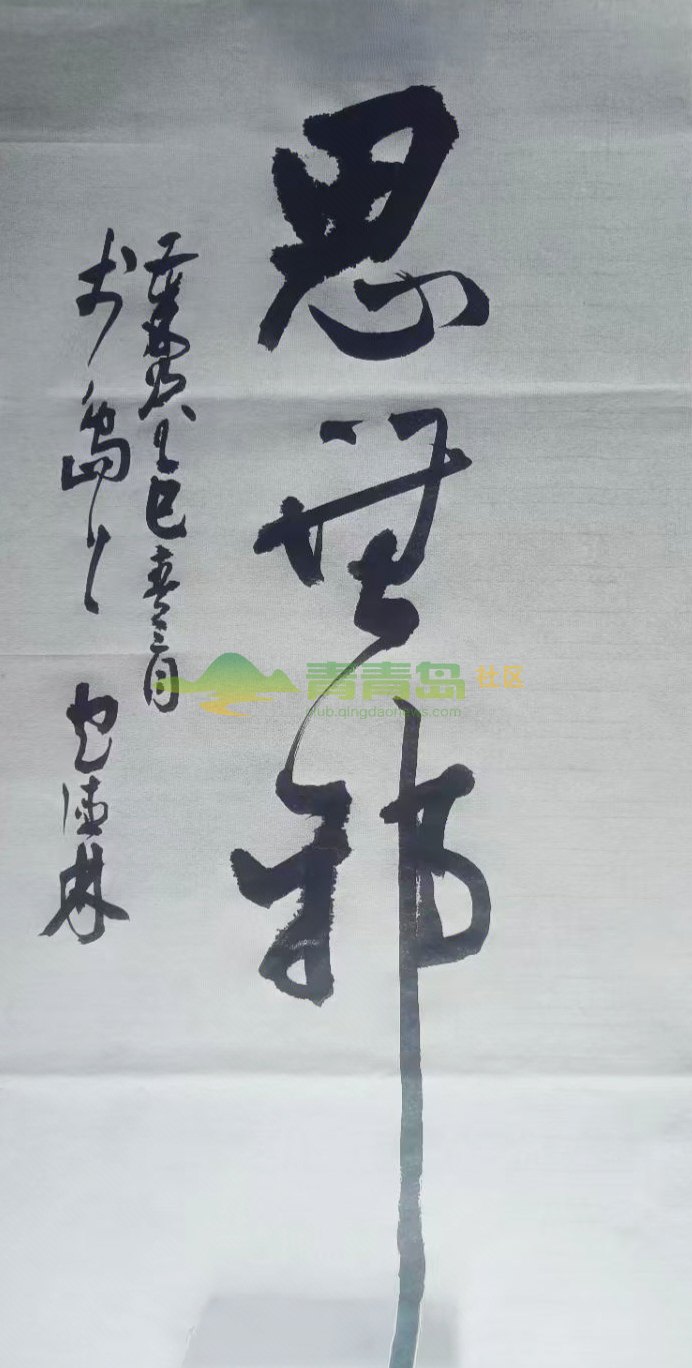 思無邪
乙巳春三月
于島上 包德林
青青岛社区
club.qingdaonews.com